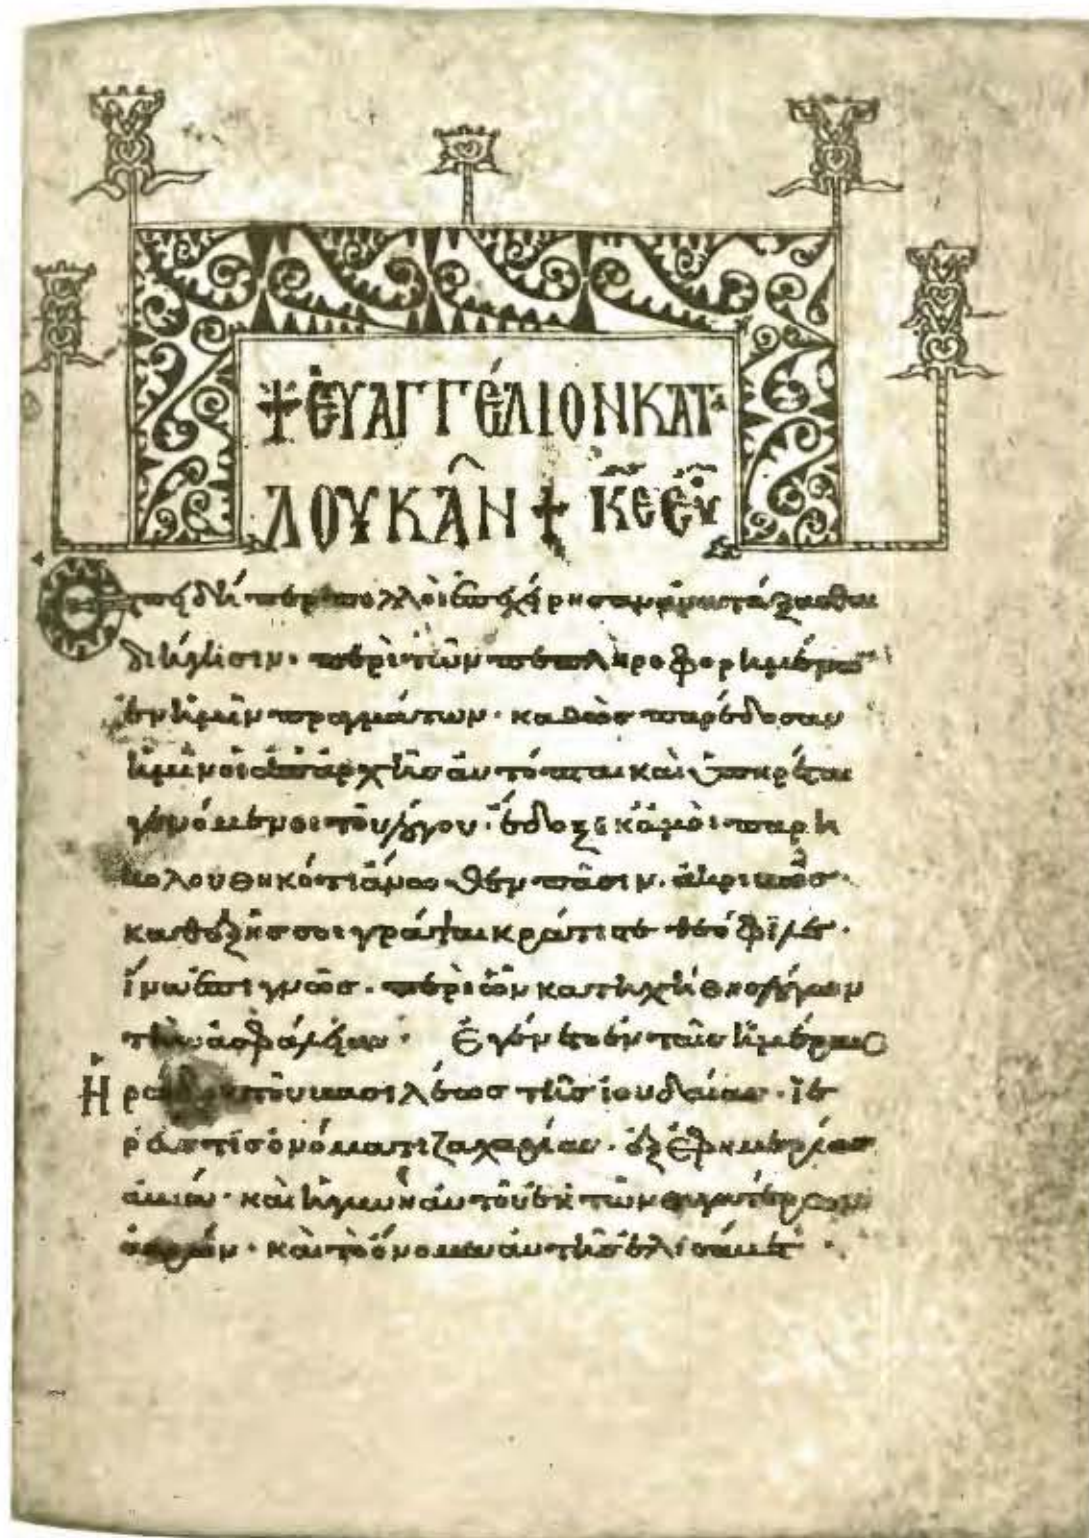 ☩ ἘΥΑΓΓΈΛΙΟΝ ΚΑΤᾺ
ΛΟΥΚΑ͂Ν ☩
Ἐπειδήπερ πολλοὶ ἐπεχείρησαν ἀνατάξασθαι
διήγησιν· περὶ τῶν πεπληροφορημένων
ἐν ἡμῖν πραγμάτων· καθὼς παρέδοσαν
ἡμῖν οἱ ἀπαρχῆς αὐτόπται καὶ ὑπηρέται
γενόμενοι τοῦ λόγου· ἔδοξε κἀμοὶ παρη
κολουθηκότι ἄνωθεν πᾶσιν ἀκριβῶς·
καθεξῆς σοι γράψαι κράτιστε θεόφιλε·
ἵνα ἐπιγνῶς· περὶ ὧν κατηχήθης λόγων
τὴν ἀσφάλειαν· Ἐγένετο ἐν ταῖς ἡμέραις
Ἡρώδου τοῦ βασιλέως τῆς ἰουδαίας· ἱε
ρεύς τις ὀνόματι ζαχαρίας· ἐξ ἐφημερίας
ἀβιά· καὶ ἡ γυνὴ αὐτοῦ ἐκ τῶν θυγατέρων
ἀαρών· καὶ τὸ ὄνομα αὐτῆς ἐλισάβετ·